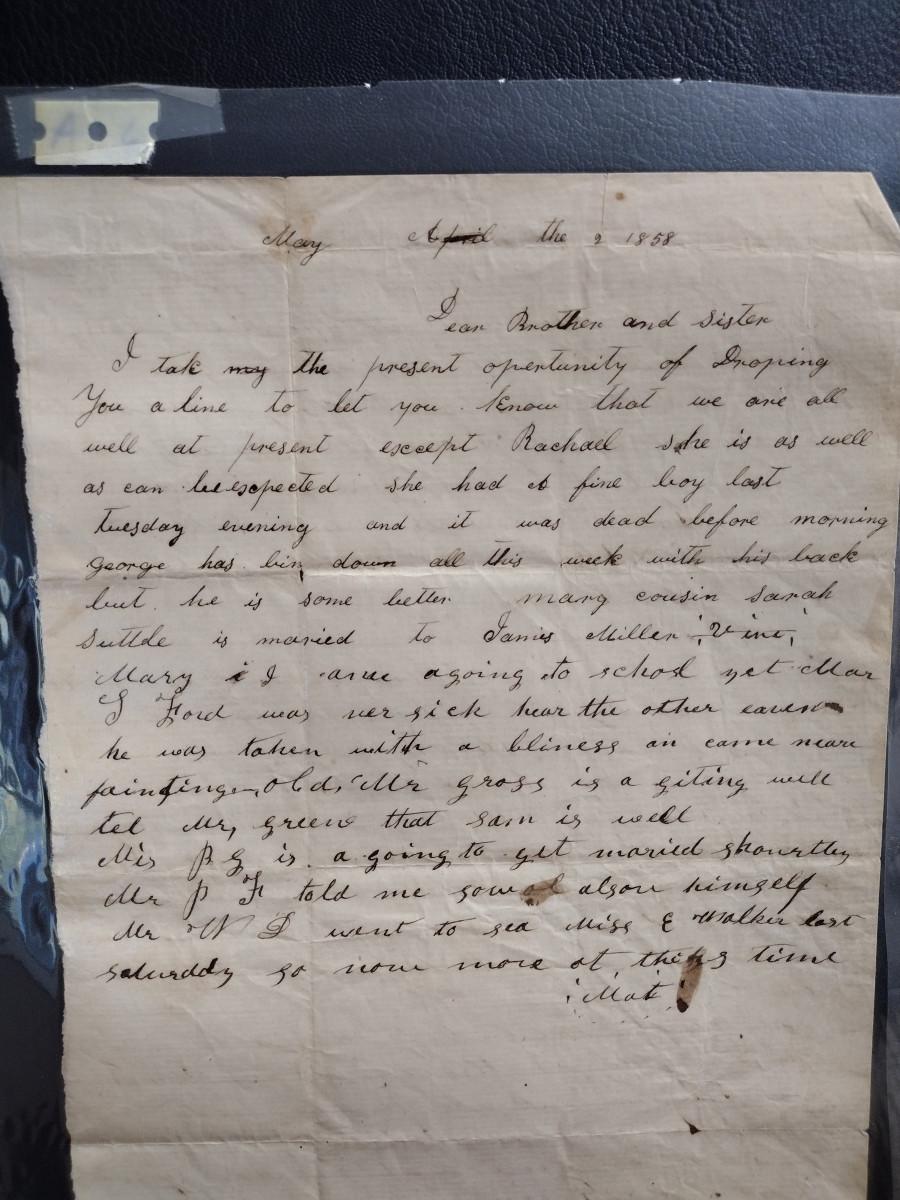 May April the 2 1858
Dear Brother and Sister
I take my the present opertunity of Droping
You a line to let you know that we are all
well at present exceept Rachael she is as well
as can be expected she had A fine boy last
tuesday evening and it was dead before morning
george has bin down all this week with his back
but he is some better mary cousin sarah
Suttde is maried to James Miller
Mary i I arue agoing to school yet Mar
S Ford was ver sick hear the other eaven
he was taken with a bliness an came neare
fainting old Mr gross is a giting well
tel Mr, green that sam is well
Mis P G is a going to get maried shourtley
Mr P F told me so alson himself
Mr W D went to sea Miss E Walker last
saturdday so nour more at things time
Mat